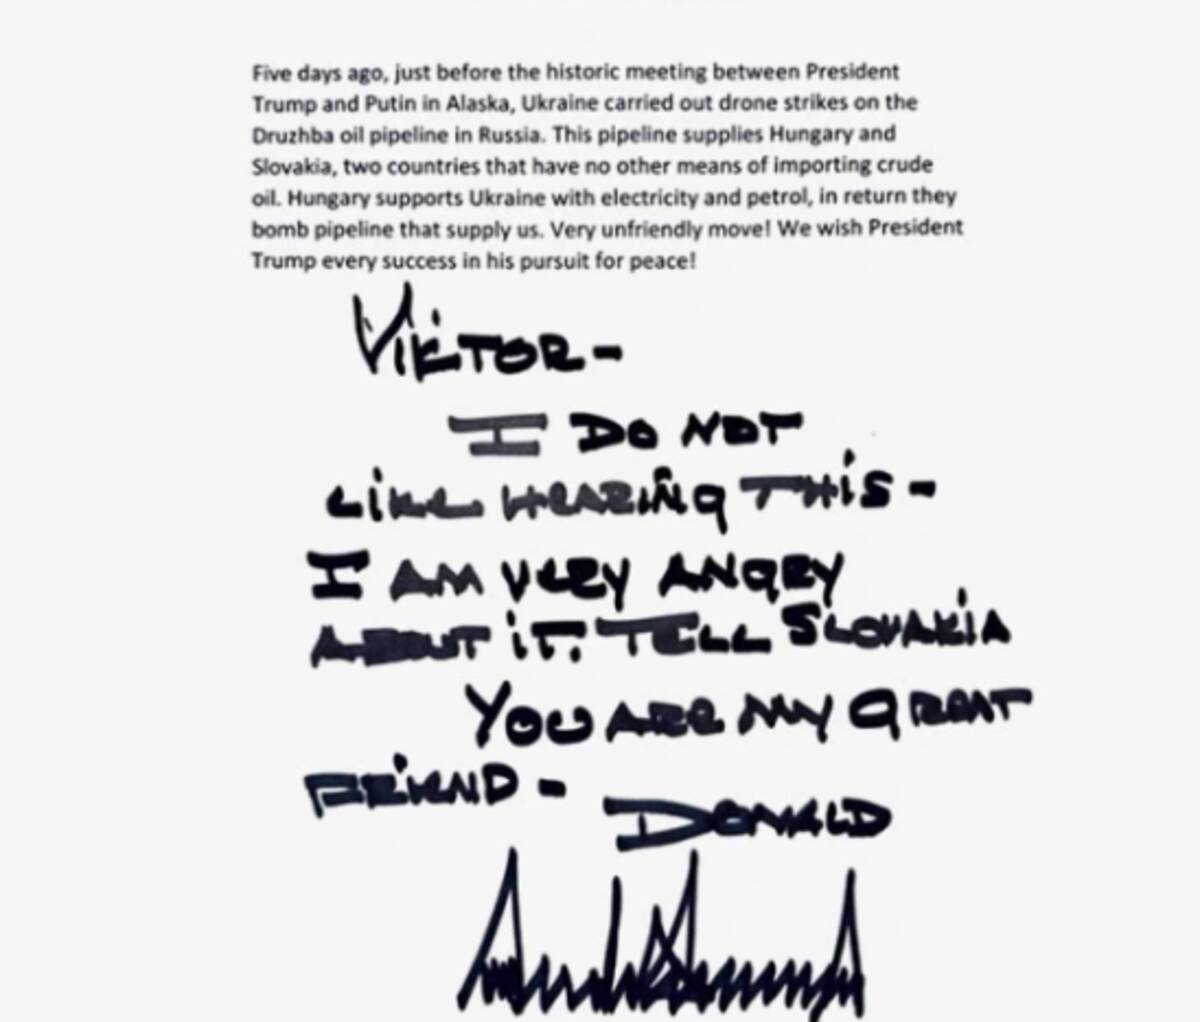 Five days ago, just before the historic meeting between President
Trump and Putin in Alaska, Ukraine carried out drone strikes on the
Druzhba oil pipeline in Russia. This pipeline supplies Hungary and
Slovakia, two countries that have no other means of importing crude
oil. Hungary supports Ukraine with electricity and petrol, in return they
bomb pipeline that supply us. Very unfriendly move! We wish President
Trump every success in his pursuit for peace!
VIKTOR -
I DO NOT
LIKE HEARING THIS -
I AM VERY ANGRY
ABOUT IT. TELL SLOVAKIA
YOU ARE MY GREAT
FRIEND -
DONALD